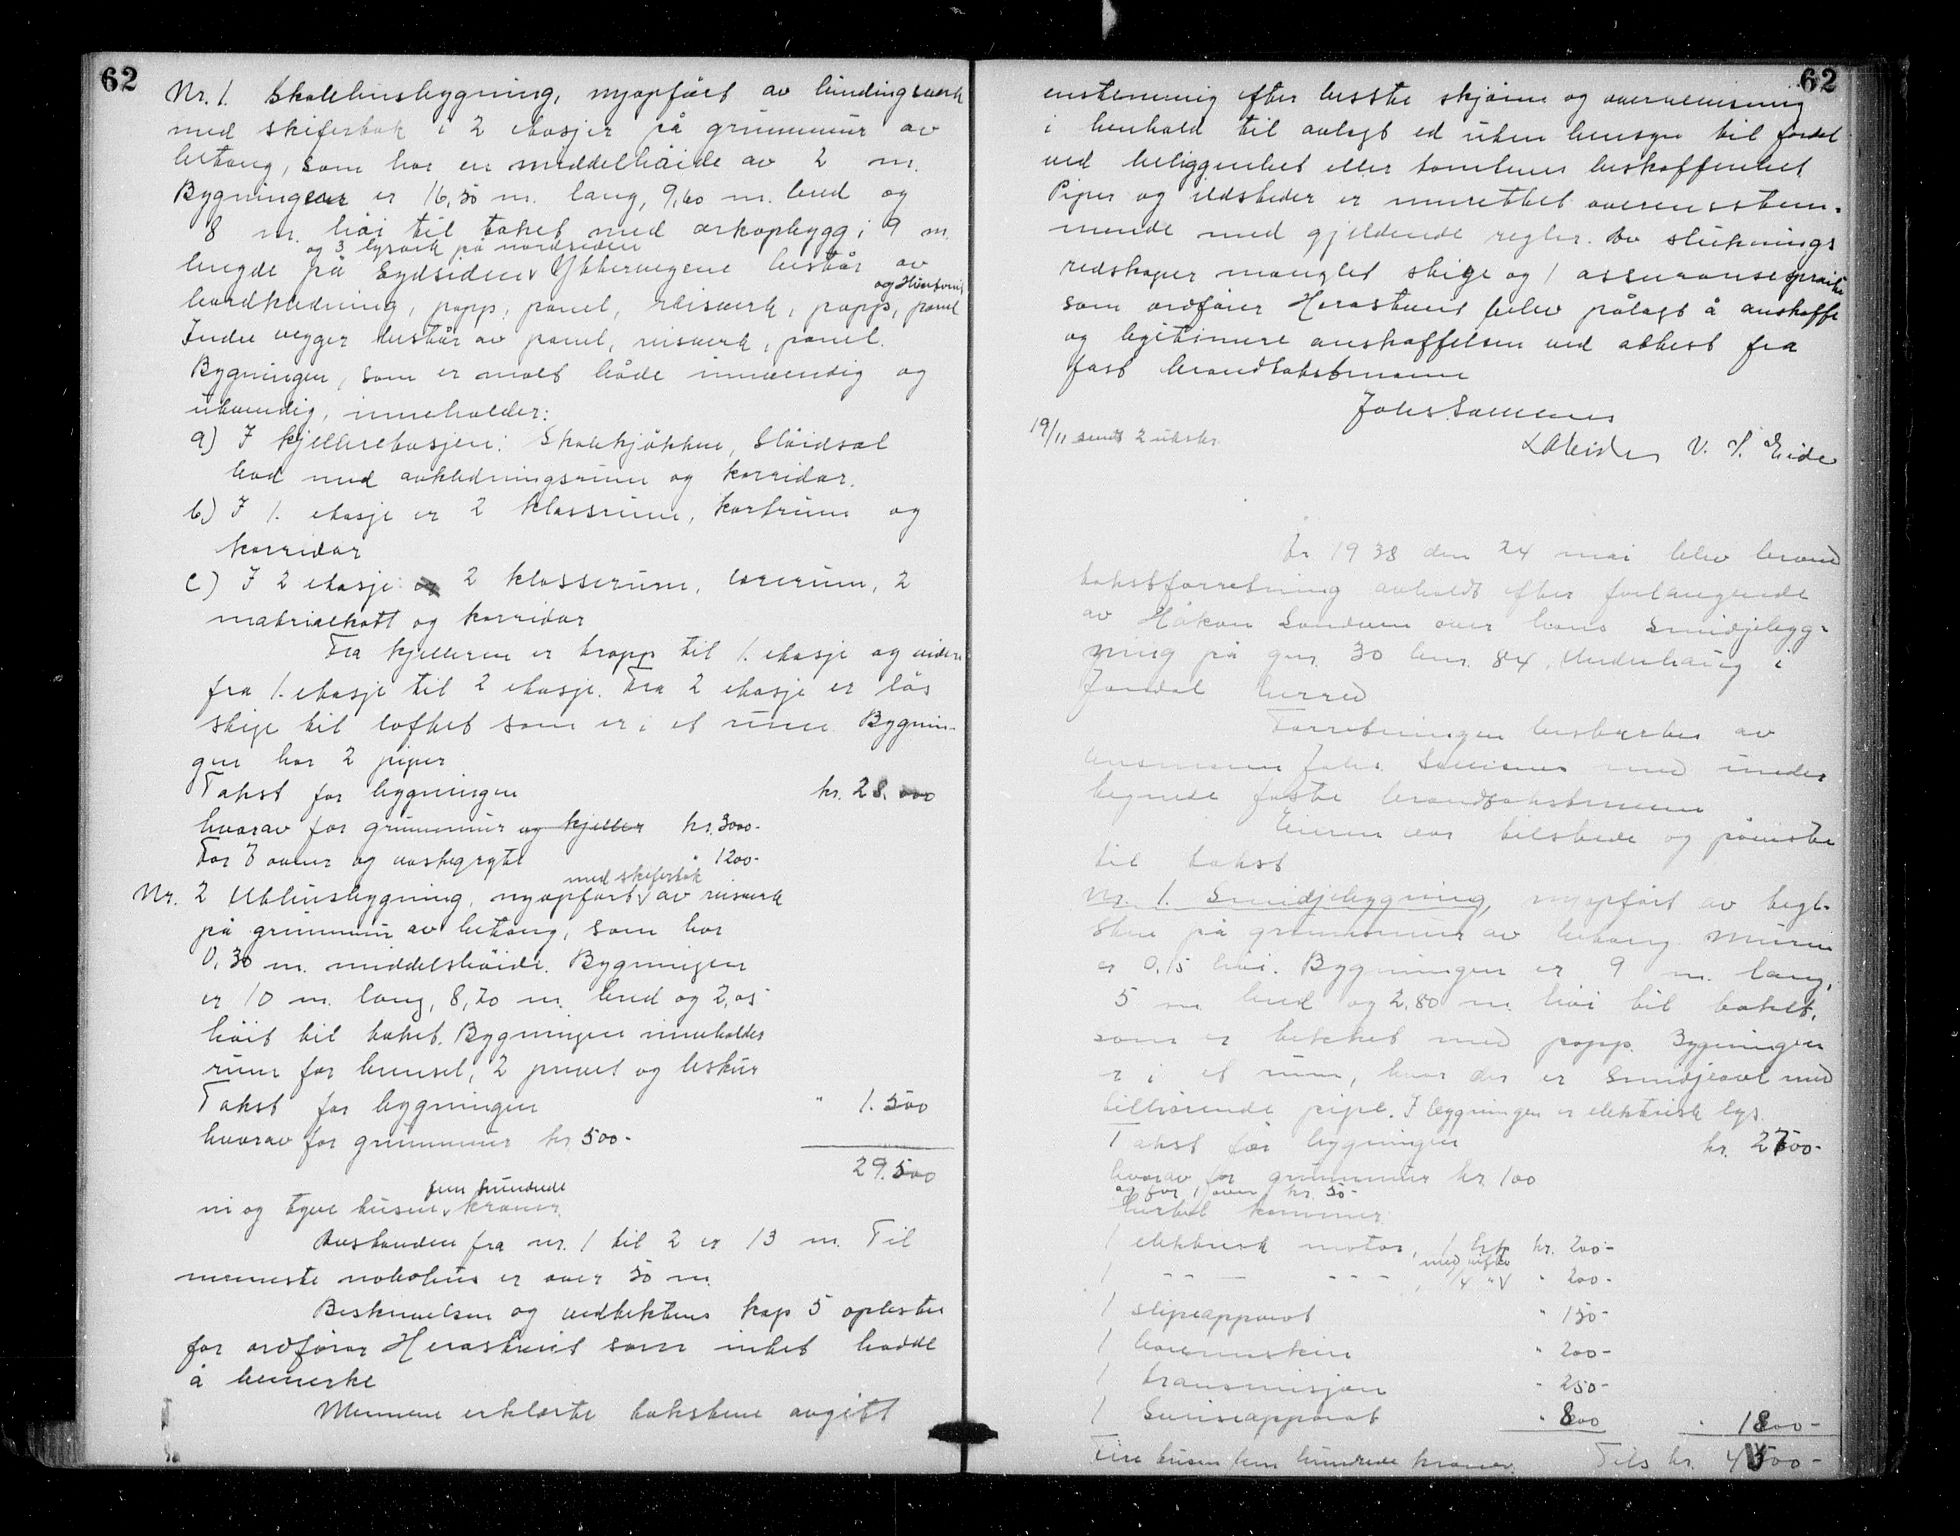 62
Nr. 1. Skolehusbygning, nyopført av bindingsverk
med skifertak i 2 etasjer på grunnmur av
betong, som har en middelhøide av 2 m.
Bygningen er 16,50 m. lang, 9,60 m. bred og
8 m. høi til taket med arkopbygg i 9 m.
og 3 lysark på nordsiden
lengde på Sydsiden. Ytterveggene består av
og Huntonit
bordkledning, papp, panel, reisverk, papp, panel
Indre vegger består av panel, reisverk, panel.
Bygningen, som er malt både innvendig og
utvendig, inneholder:
a) I kjelleretasjen: Skolekjøkken, Sløidsal
bad med avkledningsrum og korridor.
b) I 1. etasje er 2 klasserum, kartrum og
korridor
c) I 2 etasje: er 2 klasserum, lærerum, 2
matrialkott og korridor
Fra kjelleren er trapp til 1. etasje og videre
fra 1. etasje til 2 etasje. Fra 2 etasje er løs
stige til loftet som er i et rum. Bygnin-
gen har 2 piper
Takst for bygningen kr. 28.000
hvorav for grunnmur og kjeller kr. 3000-
For 7 ovner og vaskegryte 1200-
med skifertak
Nr. 2 Uthusbygning, nyopført av reisverk
på grunnmur av betong, som har
0,30 m. middelshøide. Bygningen
er 10 m. lang, 8,20 m. bred og 2,05
høit til taket. Bygningen inneholder
rum for brensel, 2 priveet og leskur
Takst for bygningen " 1.500
hvorav for grunnmur kr 500-
29.500
fem hundrede
ni og tyve tusen kroner.
Avstanden fra nr. 1 til 2 er 13 m. Til
nermeste nabohus er over 50 m.
Beskrivelsen og vedtektens kap 5 oplestes
for ordfører Herastveit som intet hadde
å bemerke
Mennene erklærte takstene avgitt

62
enstemmig efter beste skjønn og overbevisning
i henhold til avlagt ed uten hensyn til fordel
ved beliggenhet eller tomtenes beskaffenhet
Piper og ildsteder er innrettet overensstem-
mende med gjeldende regler. Av sluknings
redskaper manglet stige og 1 assuransesprøite
som ordfører Herastveit blev pålagt å anskaffe
og legitimere anskaffelsen ved attest fra
fast brandtakstmann
Johs Samnes
L A Eide V. S. Eide
19/11 sendt 2 utskr.
År 1938 den 24 mai blev brand
takstforretning avholdt efter forlangende
av Håkon Sandven over hans Smidjebygg-
ning på gnr. 30 bnr. 84, Underhaug i
Jondal herred
Forretningen bestyrtes av
lensmann Johs. Samnes med under
tegnede faste brandtakstmenn
Eieren var tilstede og påviste
til takst
Nr. 1. Smidjebyggning, nyopført av tegl-
sten på grunnmur av betong. Muren
er 0,15 høi. Bygningen er 9 m. lang,
5 m bred og 2,80 m. høi til taket,
som er tekket med papp. Bygningen
er i et rum, hvor der er Smidjeavl med
tilhørende pipe. I bygningen er elektrisk lys.
Takst for bygningen kr. 2700-
hvorav for grunnmur kr 100
og for 1 ovn kr. 50-
Hertil kommer:
1 elektrisk motor, 1 hk kr. 200-
med vifte
1 -- - --- , 1/4 " " 200-
1 slipeapparat " 150-
1 boremaskin " 200-
1 transmisjon " 250-
1 Sveiseapparat " 800 " 1800-
Fire tusen fem hundrede kroner. Tils kr. 4500-